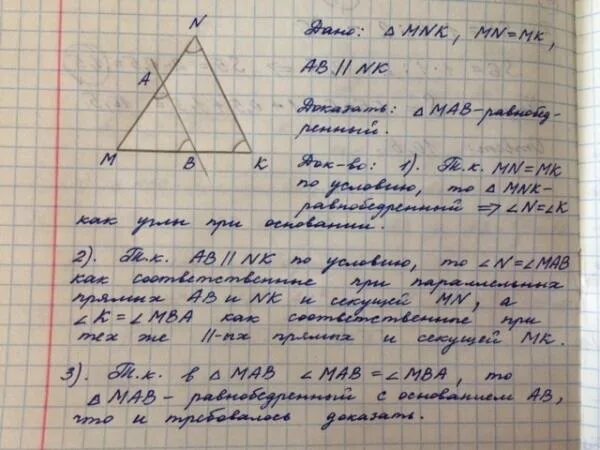 N
Дано: △ MNK, MN = MK,
A
AB || NK
Доказать: △ MAB - равнобед-
ренный.
M B K
Док-во: 1). Т.к. MN = MK
по условию, то △ MNK -
равнобедренный ⟹ ∠N = ∠K
как углы при основании.
2). Т.к. AB || NK по условию, то ∠N = ∠MAB
как соответственные при параллельных
прямых AB и NK и секущей MN, а
∠K = ∠MBA как соответственные при
тех же ||-ых прямых и секущей MK.
3). Т.к. в △ MAB ∠MAB = ∠MBA, то
△ MAB - равнобедренный с основанием AB,
что и требовалось доказать.